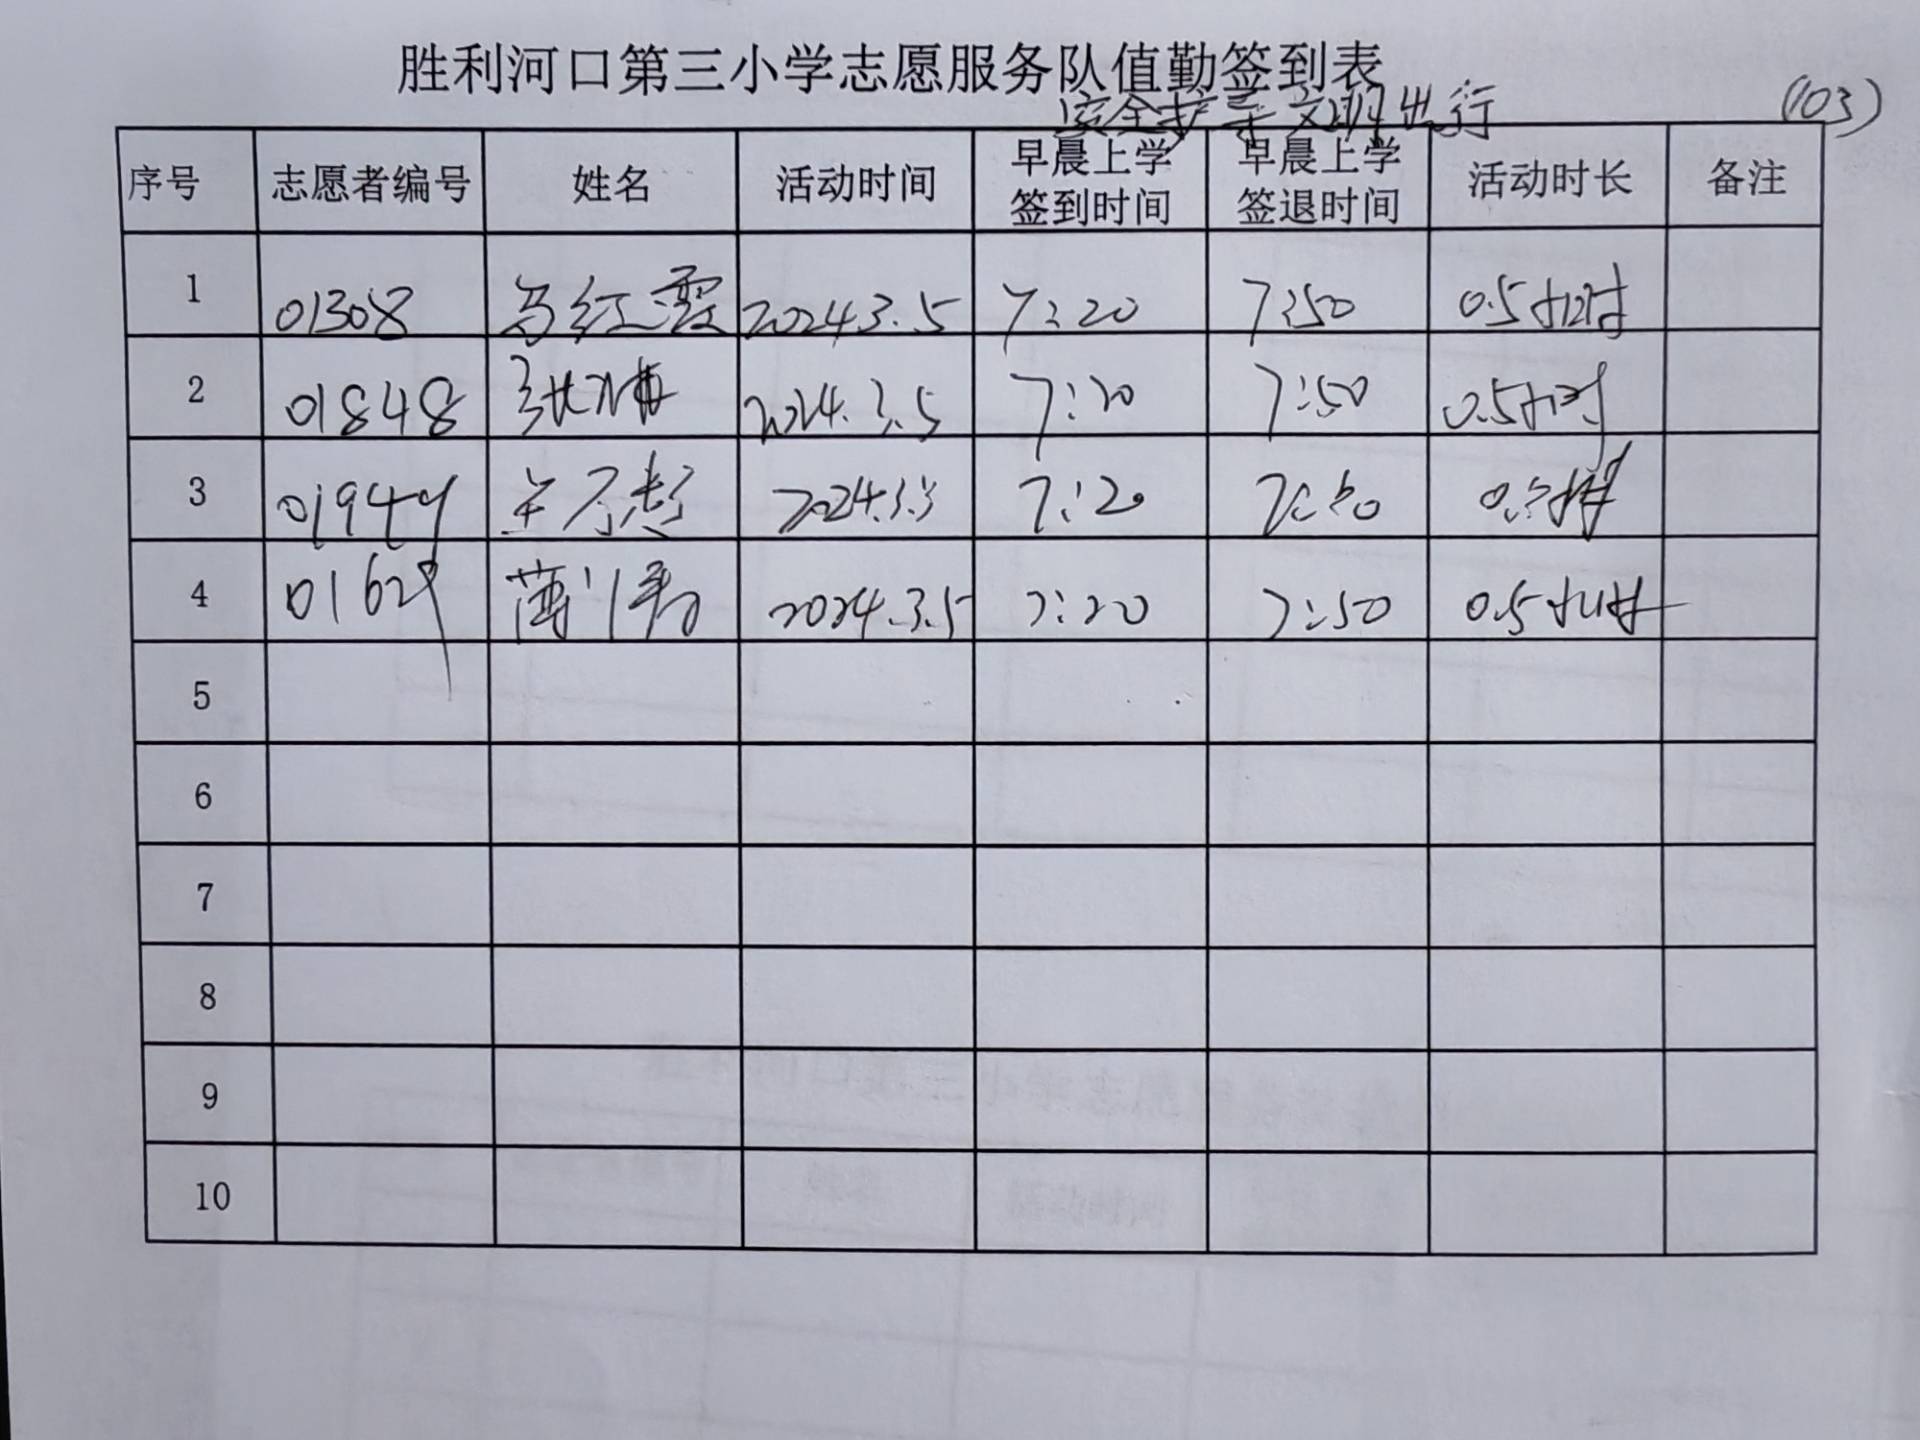 胜利河口第三小学志愿服务队值勤签到表
安全护导 文明出行 (103)
序号 志愿者编号 姓名 活动时间 早晨上学签到时间 早晨上学签退时间 活动时长 备注
1 01308 马红霞 2024.3.5 7:20 7:50 0.5小时
2 01848 2024.3.5 7:20 7:50 0.5小时
3 01949 2024.3.5 7:20 7:50 0.5小时
4 01629 2024.3.5 7:20 7:50 0.5小时
5
6
7
8
9
10